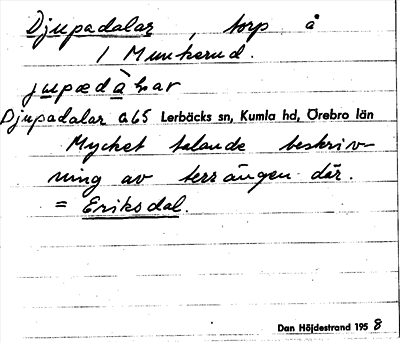 Djupadalar, torp å
1 Munkerud.
Djupadalar a65 Lerbäcks sn, Kumla hd, Örebro län
Mycket talande beskriv-
ning av terrängen där.
= Eriksdal.
Dan Höjdestrand 1958